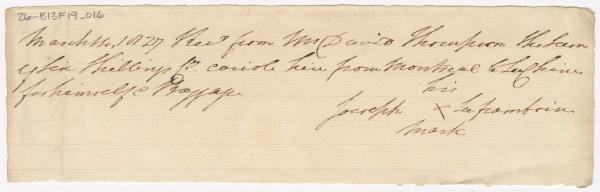 26-B13F19_016
March 18, 1827 Recd from Mr David Thompson the sum
of six Shillings Cy. cariole hire from Montreal to LaChine
for himself & Baggage
his
Joseph X Laframboise
mark